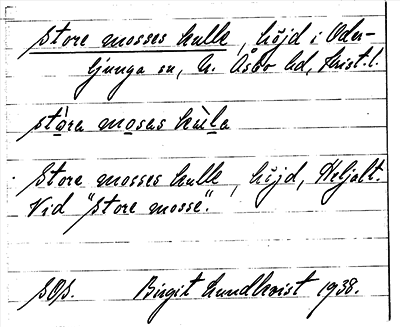 Store mosses kulle, höjd i Öder-
ljunga sn, N. Åsbo hd, Krist. l.
stòra mosas kùla
Store mosses kulle, höjd,
Vid "Store mosse".
SOS. Birgit Lundkvist 1938.